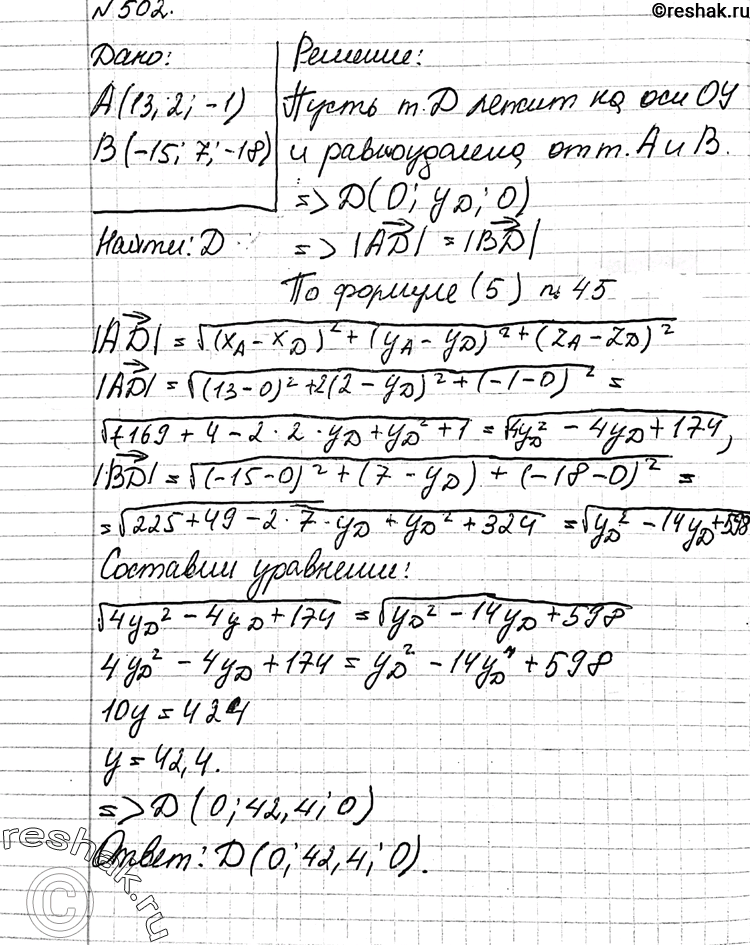 ©reshak.ru
№502.
Дано:
A(13; 2; -1)
B(-15; 7; -18)
Найти: D
Решение:
Пусть т. D лежит на оси OY
и равноудалена от т. A и B.
=> D(0; yD; 0)
=> |AD| = |BD|
По формуле (5) п. 45
|AD| = √(xA - xD)² + (yA - yD)² + (zA - zD)²
|AD| = √(13-0)² + 2(2 - yD)² + (-1-0)² =
√+169 + 4 - 2·2·yD + yD² + 1 = √4yD² - 4yD + 174,
|BD| = √(-15-0)² + (7 - yD) + (-18-0)² =
= √225 + 49 - 2·7·yD + yD² + 324 = √yD² - 14yD + 598
Составим уравнение:
√4yD² - 4yD + 174 = √yD² - 14yD + 598
4yD² - 4yD + 174 = yD² - 14yD + 598
10y = 424
y = 42,4.
=> D(0; 42,4; 0)
Ответ: D(0; 42,4; 0).
reshak.ru
©